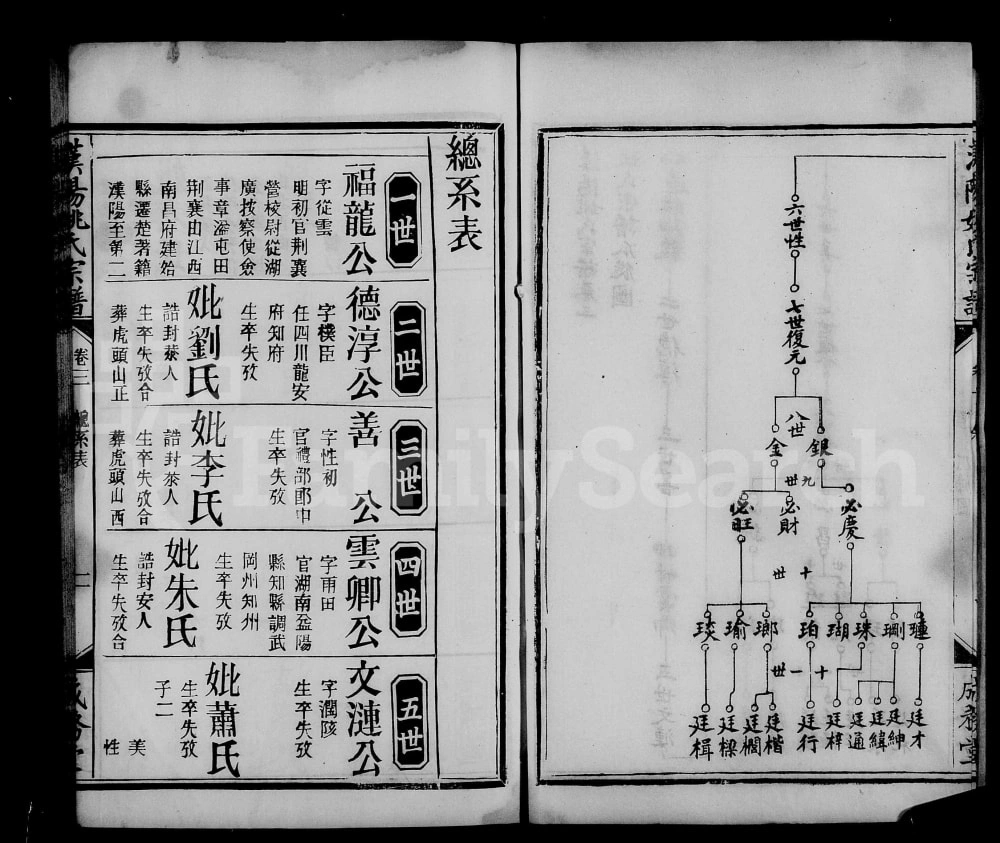 六世性
七世復元
八世
金
銀
九世
必旺
必財
必慶
十世
琰
瑜
瑯
珀
瑚
珠
瑠
十一世
廷楫
廷樑
廷櫚
廷楷
廷行
廷梓
廷通
廷緯
廷紳
廷才
總系表
一世
福龍公
字從雲
明初官荆襄
營棱尉從湖
廣按察使僉
事章溢屯田
荆襄由江西
南昌府建始
縣遷楚著籍
漢陽至第二
二世
德淳公
字樸臣
任四川龍安
府知府
生卒失攷
妣劉氏
誥封恭人
生卒失攷合
葬虎頭山正
三世
善公
字性初
官禮部郎中
生卒失攷
妣李氏
誥封恭人
生卒失攷合
葬虎頭山西
四世
雲卿公
字雨田
官湖南益陽
縣知縣調武
岡州知州
生卒失攷
妣朱氏
誥封安人
生卒失攷合
五世
文漣公
字潤陔
生卒失攷
妣蕭氏
生卒失攷
子二
美
性
漢陽姚氏宗譜
卷三
總系表
FamilySearch